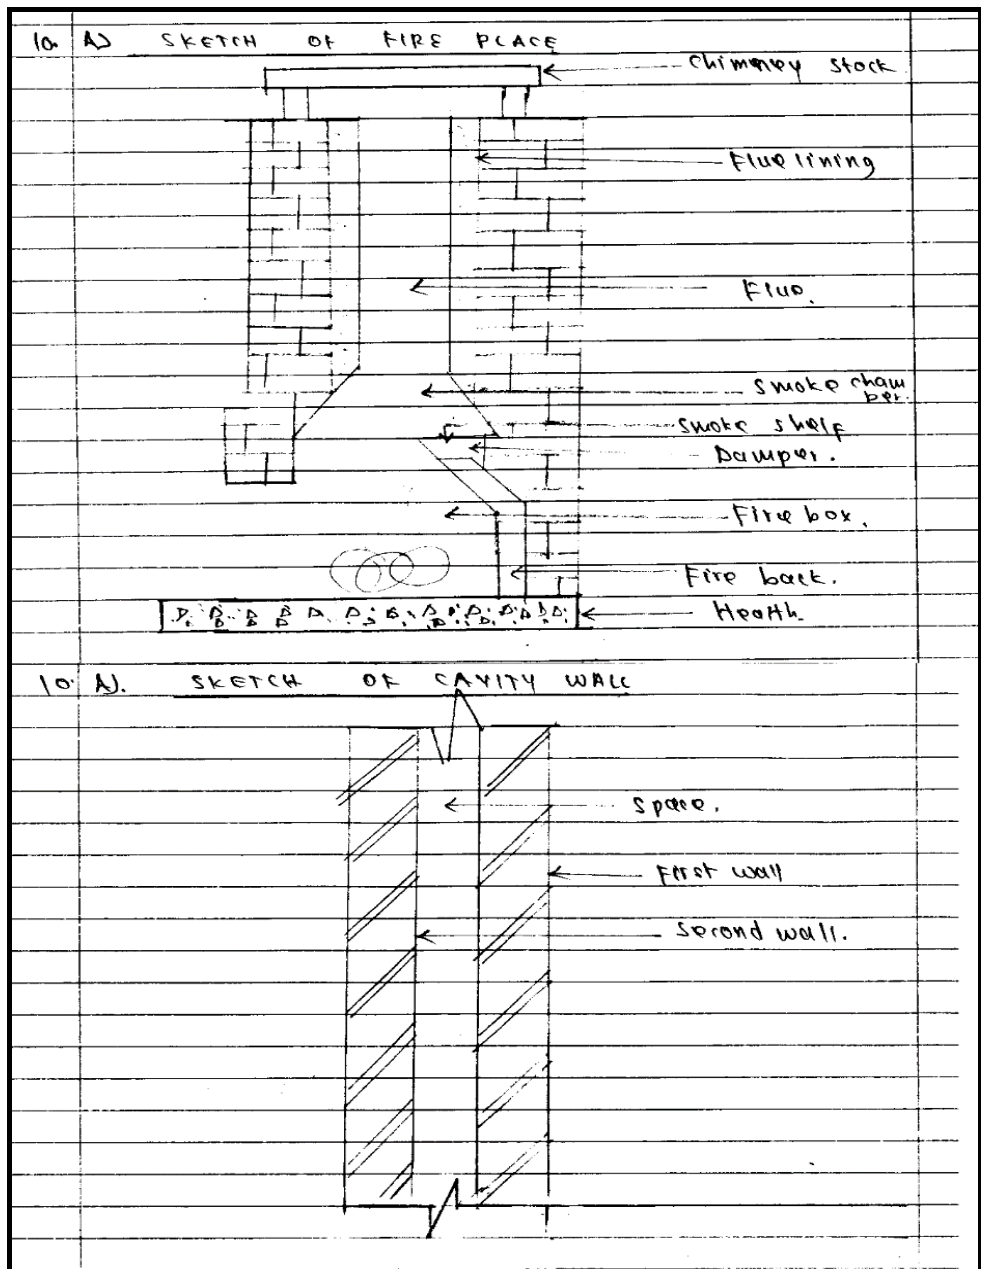 10. A) SKETCH OF FIRE PLACE
Chimney stock
Flue lining
Flue.
Smoke cham
ber.
Smoke shelf
Damper.
Fire box.
Fire back.
Hearth.
10. A). SKETCH OF CAVITY WALL
Space.
First wall
Second wall.